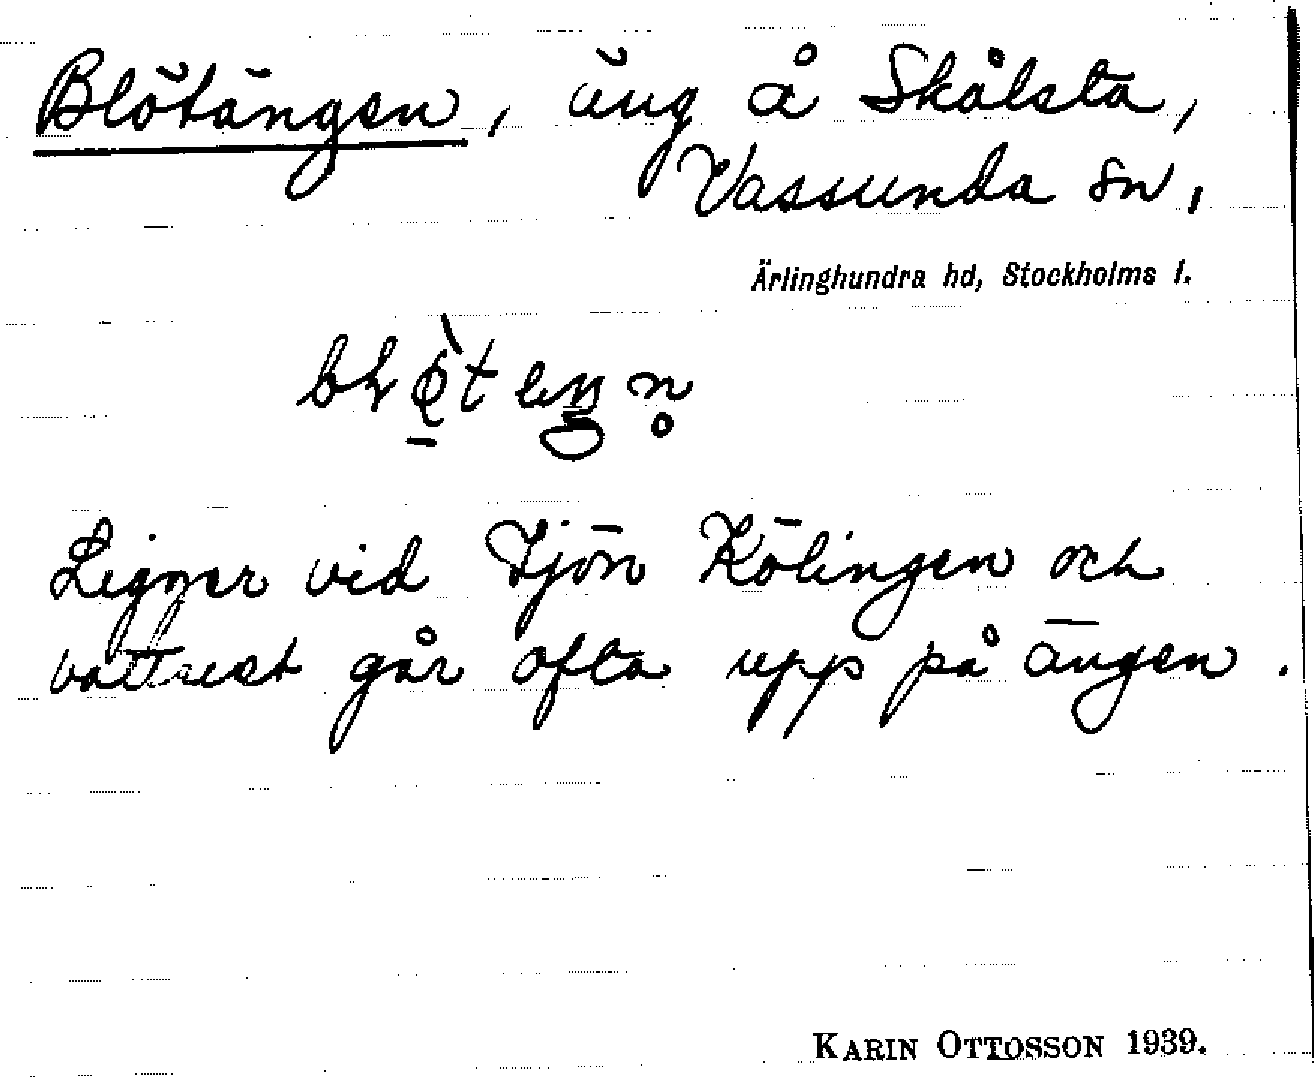 Blötängen, äng å Skålsta,
Vassunda sn,
Ärlinghundra hd, Stockholms l.
Ligger vid Tjön Kölingen och
vattnet går ofta upp på ängen.
KARIN OTTOSSON 1939.